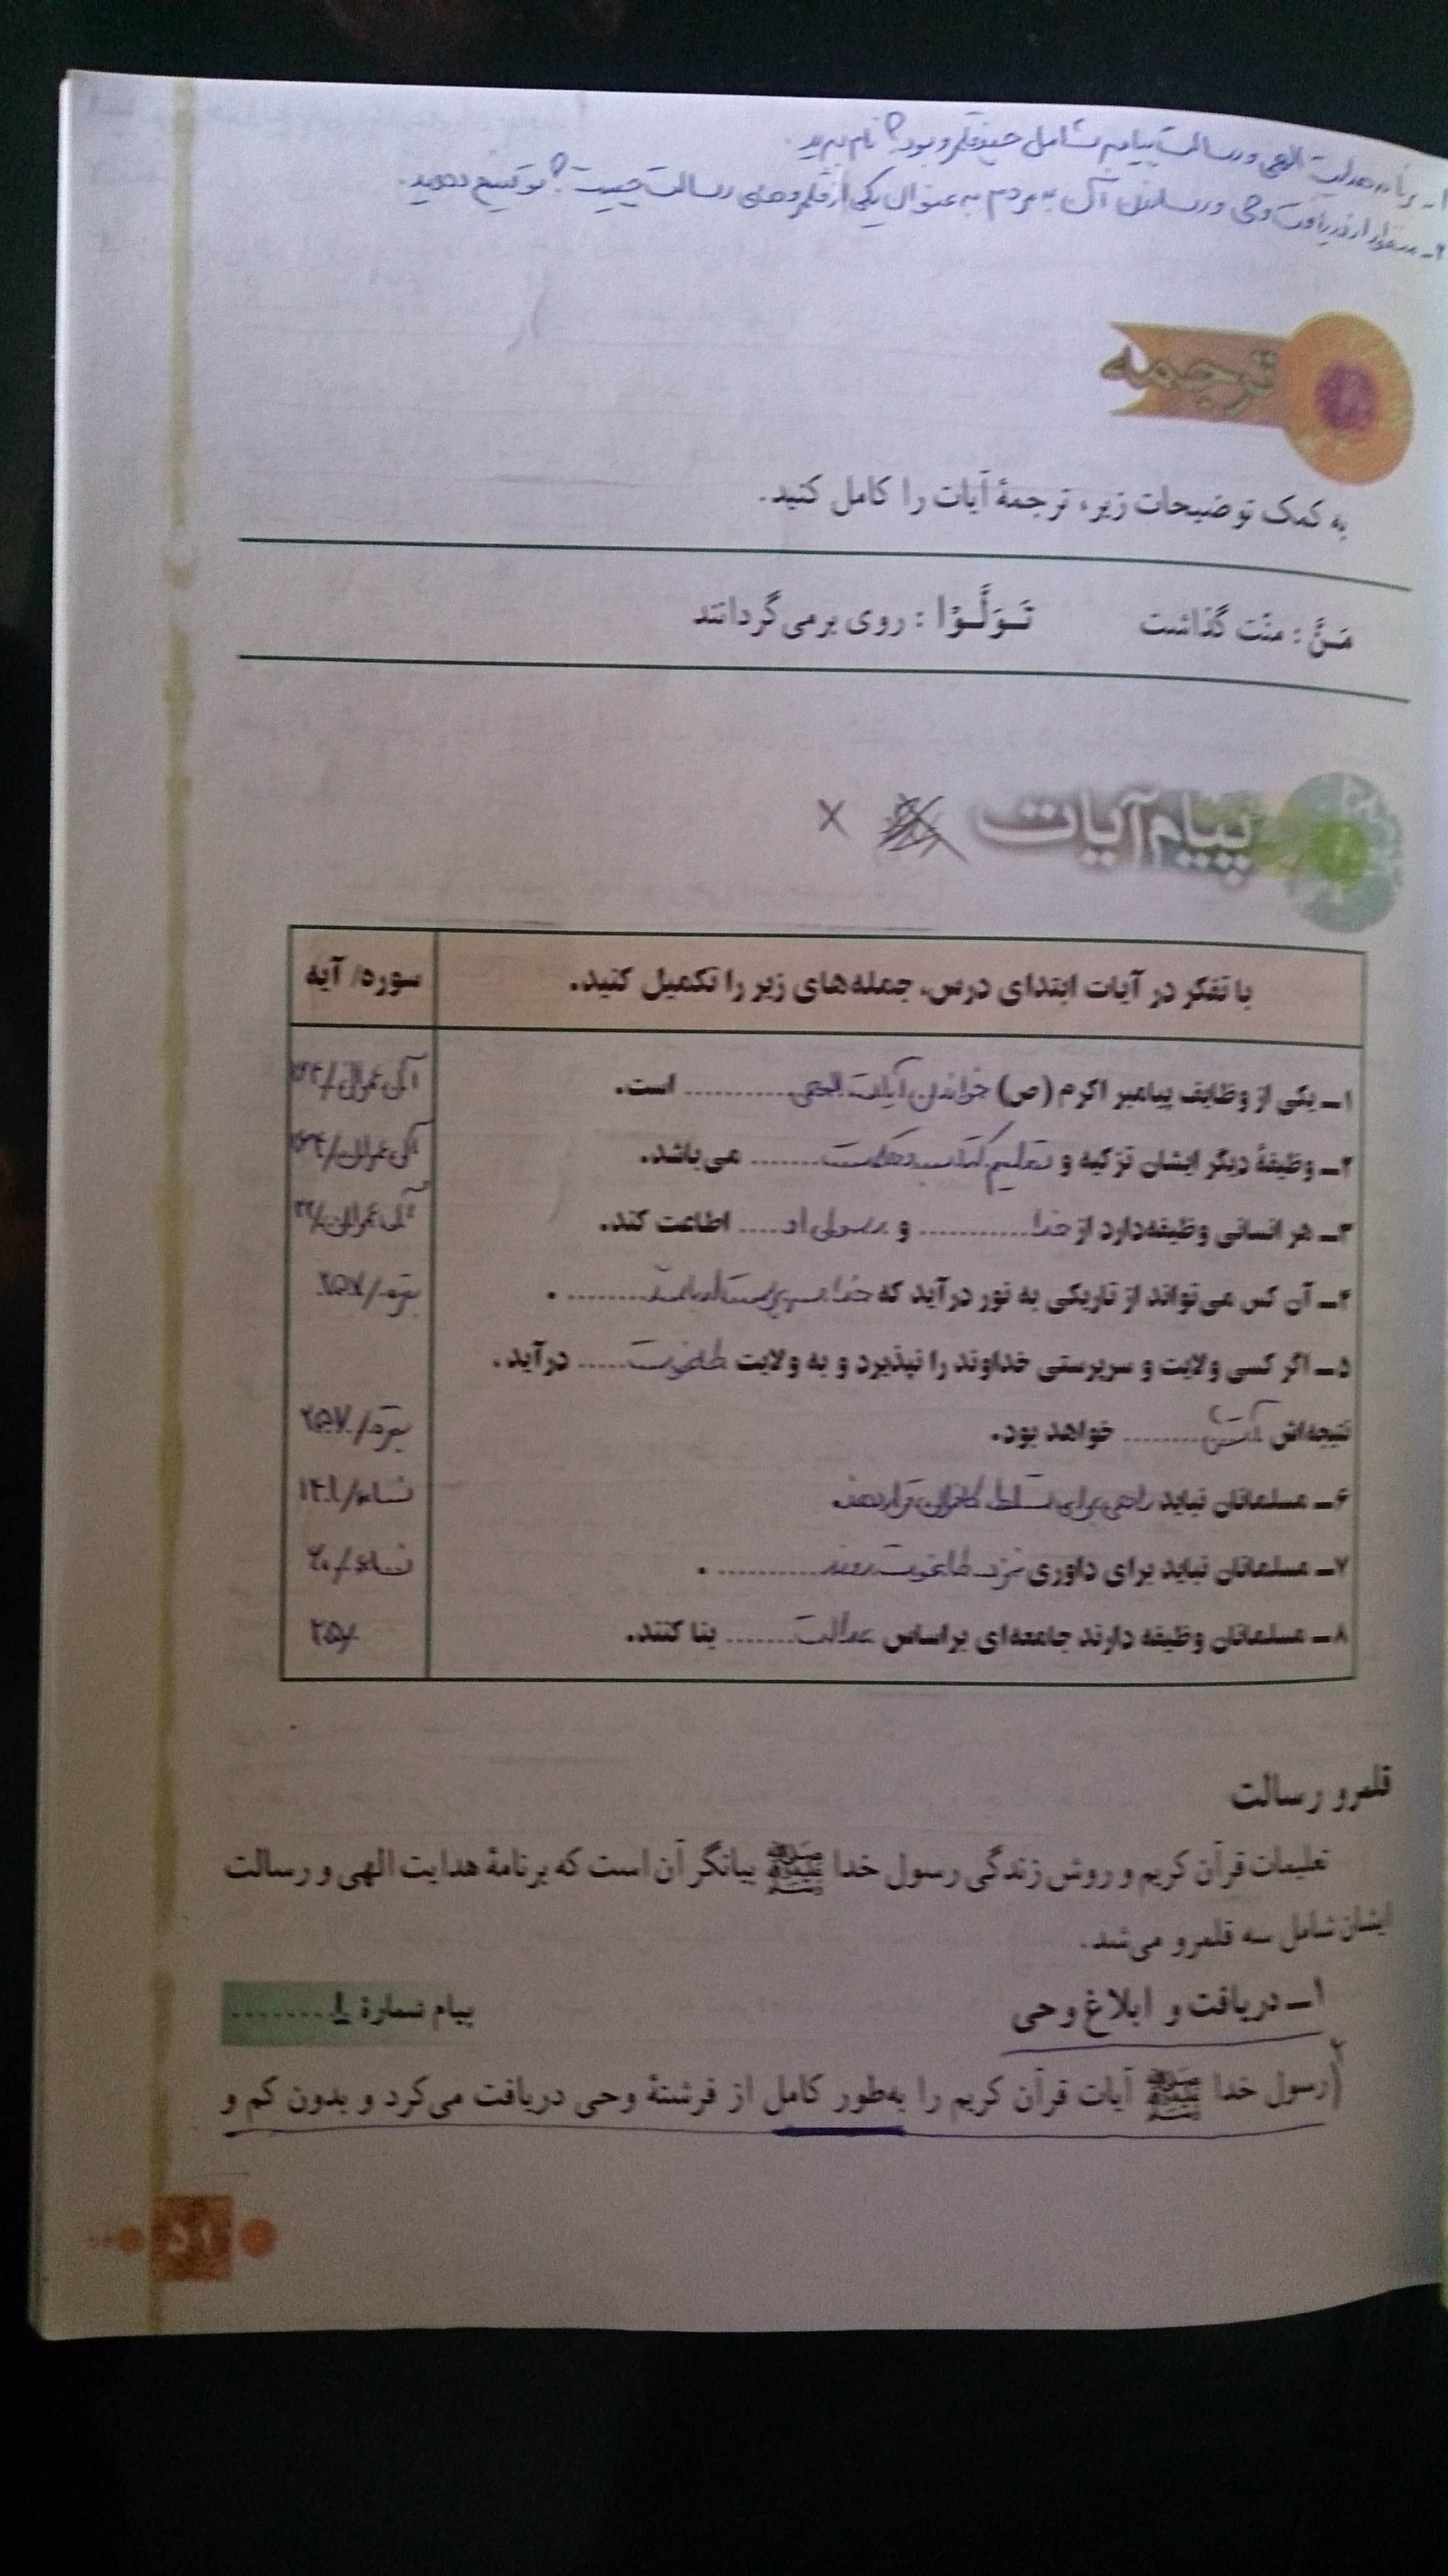 ۱- برنامه هدایت الهی و رسالت پیامبر شامل چند قلمرو بود؟ نام ببرید.
۲- منظور از دریافت وحی و رساندن آن به مردم به عنوان یکی از قلمروهای رسالت چیست؟ توضیح دهید.
ترجمه
به کمک توضیحات زیر، ترجمهٔ آیات را کامل کنید.
مَـنَّ : منّت گذاشت تَـوَلَّـوْا : روی برمی‌گردانند
پیام آیات x
با تفکر در آیات ابتدای درس، جمله‌های زیر را تکمیل کنید. سوره/ آیه
۱ــ یکی از وظایف پیامبر اکرم (ص) خواندن آیات الهی .......... است. آل عمران/۱۶۴
۲ــ وظیفهٔ دیگر ایشان تزکیه و تعلیم کتاب و حکمت ....... می‌باشد. آل عمران/۱۶۴
۳ــ هر انسانی وظیفه‌دارد از خدا ............ و رسول او .... اطاعت کند. آل عمران/۳۲
۴ــ آن کس می‌تواند از تاریکی به نور درآید که خدا سرپرست او باشد ........ . بقره/۲۵۷
۵ــ اگر کسی ولایت و سرپرستی خداوند را نپذیرد و به ولایت طاغوت ..... درآید،
نتیجه‌اش آتش ........ خواهد بود. بقره/۲۵۷
۶ــ مسلمانان نباید راهی برای تسلط کافران قرار دهند. نساء/۱۴۱
۷ــ مسلمانان نباید برای داوری نزد طاغوت روند .......... . نساء/۶۰
۸ــ مسلمانان وظیفه دارند جامعه‌ای براساس عدالت ....... بنا کنند. /۲۵
قلمرو رسالت
تعلیمات قرآن کریم و روش زندگی رسول خدا ﷺ بیانگر آن است که برنامهٔ هدایت الهی و رسالت
ایشان شامل سه قلمرو می‌شد.
۱ــ دریافت و ابلاغ وحی پیام شمارهٔ ۱ .......
۲
(رسول خدا ﷺ آیات قرآن کریم را به‌طور کامل از فرشتهٔ وحی دریافت می‌کرد و بدون کم و
۵۱